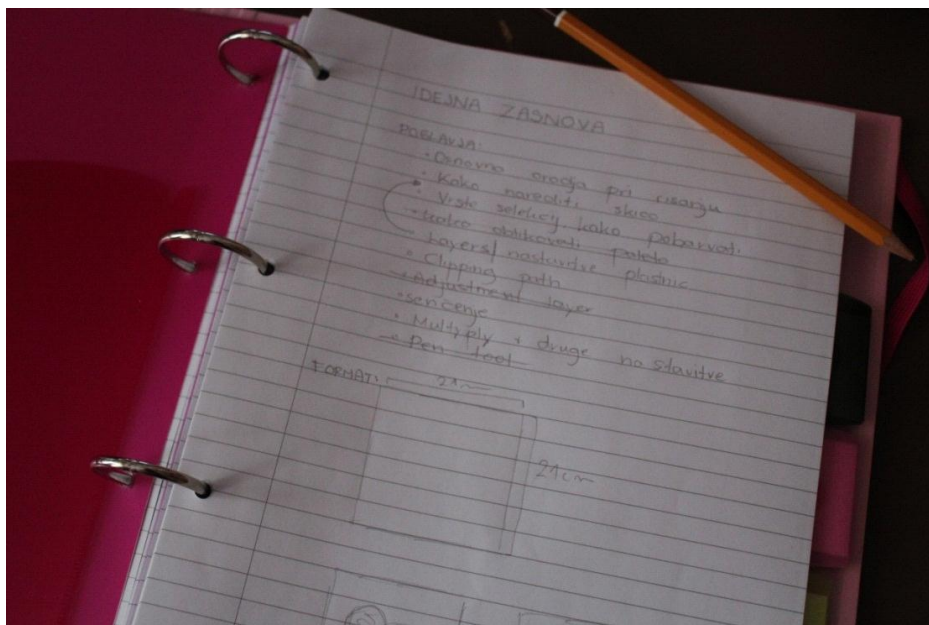 IDEJNA ZASNOVA
POGLAVJA:
• Osnovno orodja pri risanju
• Kako narediti skico
• Vrste selekcij, kako pobarvati
• kako oblikovati paleto
Layers/ nastavitve plastnic
• Clipping path
- Adjustment layer
• senčenje
• Multiply + druge nastavitve
- Pen tool
FORMAT: 21cm
21cm